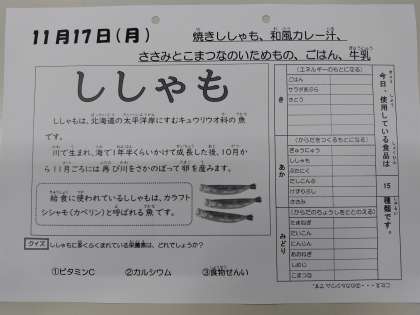 11月17日(月)
焼きししゃも、和風カレー汁、
ささみとこまつなのいためもの、ごはん、牛乳
ししゃも
ししゃもは、北海道の太平洋岸にすむキュウリウオ科の魚
です。
川で生まれ、海で1年半くらいかけて成長した後、10月か
ら11月ごろには再び川をさかのぼって卵を産みます。
給食に使われているししゃもは、カラフト
シシャモ(カペリン)と呼ばれる魚です。
クイズ ししゃもに多くふくまれている栄養素は、どれでしょうか?
①ビタミンC ②カルシウム ③食物せんい
今日、使用している食品は
15
種類です。
き
(エネルギーのもとになる)
ごはん
サラダあぶら
さとう
あか
(からだをつくるもとになる)
ぎゅうにゅう
ししゃも
ぶたにく
だしこんぶ
けずりぶし
ささみ
みどり
(からだのちょうしをととのえる)
たまねぎ
だいこん
にんじん
あおねぎ
しめじ
こまつな